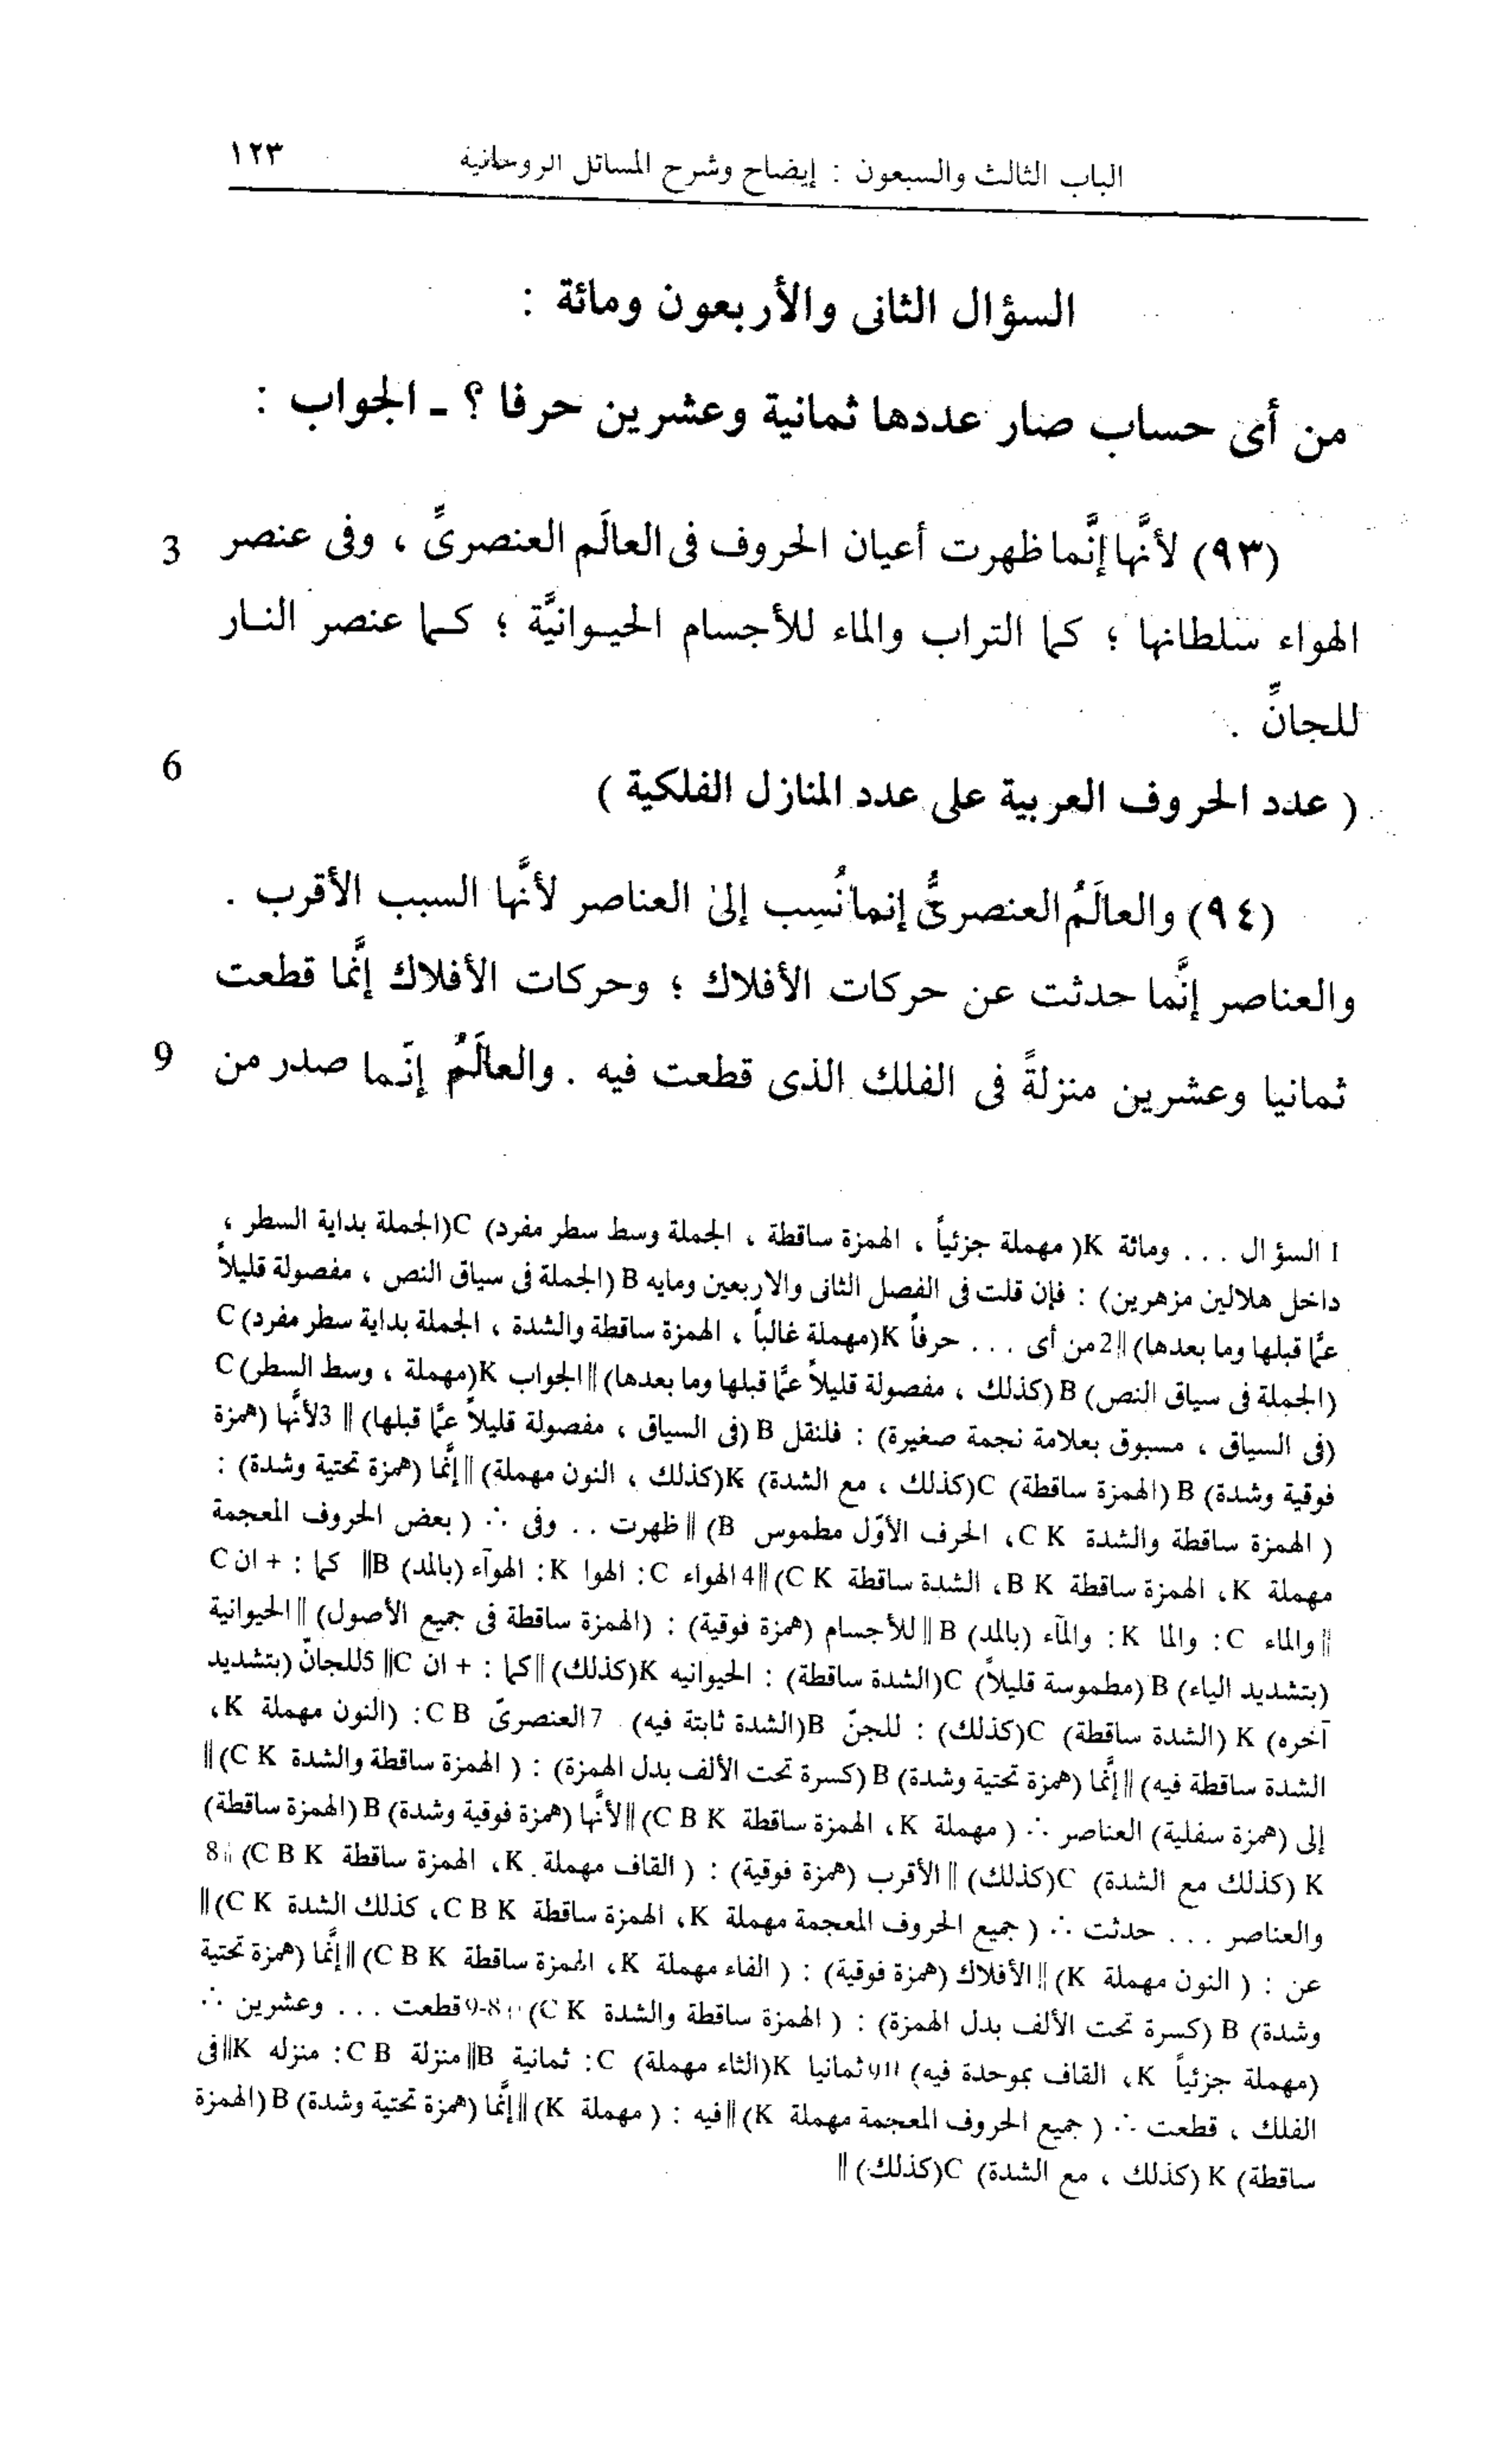 الباب الثالث والسبعون : إيضاح وشرح المسائل الروحانية ١٢٣
السؤال الثانى والأربعون ومائة :
من أى حساب صار عددها ثمانية وعشرين حرفا ؟ ـ الجواب :
(٩٣) لأنَّها إنَّما ظهرت أعيان الحروف فى العالَم العنصرىِّ ، وفى عنصر 3
الهواء سلطانها ؛ كما التراب والماء للأجسام الحيـوانيَّة ؛ كـما عنصر النـار
للجانِّ .
6
( عدد الحروف العربية على عدد المنازل الفلكية )
(٩٤) والعالَمُ العنصرىُّ إنما نُسِب إلى العناصر لأنَّها السبب الأقرب .
والعناصر إنَّما حدثت عن حركات الأفلاك ؛ وحركات الأفلاك إنَّما قطعت
ثمانيا وعشرين منزلةً فى الفلك الذى قطعت فيه . والعالَمُ إنّما صدر من 9
I السؤال ... ومائة K( مهملة جزئياً ، الهمزة ساقطة ، الجملة وسط سطر مفرد) C(الجملة بداية السطر ،
داخل هلالين مزهرين) : فإن قلت فى الفصل الثانى والاربعين ومايه B (الجملة فى سياق النص ، مفصولة قليلاً
عمَّا قبلها وما بعدها) || 2من أى ... حرفاً K(مهملة غالباً ، الهمزة ساقطة والشدة ، الجملة بداية سطر مفرد) C
(الجملة فى سياق النص) B (كذلك ، مفصولة قليلاً عمَّا قبلها وما بعدها) || الجواب K(مهملة ، وسط السطر) C
(فى السياق ، مسبوق بعلامة نجمة صغيرة) : فلنقل B (فى السياق ، مفصولة قليلاً عمَّا قبلها) || 3لأنَّها (همزة
فوقية وشدة) B (الهمزة ساقطة) C(كذلك ، مع الشدة) K(كذلك ، النون مهملة) || إنَّما (همزة تحتية وشدة) :
( الهمزة ساقطة والشدة C K، الحرف الأوّل مطموس B) || ظهرت .. وفى ∴ ( بعض الحروف المعجمة
مهملة K، الهمزة ساقطة B K، الشدة ساقطة C K) || 4الهواء C: الهوا K: الهوآء (بالمد) B|| كما : + ان C
|| والماء C: والما K: والمآء (بالمد) B || للأجسام (همزة فوقية) : (الهمزة ساقطة فى جميع الأصول) || الحيوانية
(بتشديد الياء) B (مطموسة قليلاً) C(الشدة ساقطة) : الحيوانيه K(كذلك) || كما : + ان C|| 5للجانّ (بتشديد
آخره) K (الشدة ساقطة) C(كذلك) : للجنّ B(الشدة ثابتة فيه) 7العنصرىّ C B: (النون مهملة K،
الشدة ساقطة فيه) || إنَّما (همزة تحتية وشدة) B (كسرة تحت الألف بدل الهمزة) : ( الهمزة ساقطة والشدة C K) ||
إلى (همزة سفلية) العناصر ∴ ( مهملة K، الهمزة ساقطة C B K) || لأنَّها (همزة فوقية وشدة) B (الهمزة ساقطة)
K (كذلك مع الشدة) C(كذلك) || الأقرب (همزة فوقية) : ( القاف مهملة K، الهمزة ساقطة C B K) || 8
والعناصر ... حدثت ∴ ( جميع الحروف المعجمة مهملة K، الهمزة ساقطة C B K، كذلك الشدة C K) ||
عن : ( النون مهملة K) || الأفلاك (همزة فوقية) : ( الفاء مهملة K، الهمزة ساقطة C B K) || إنَّما (همزة تحتية
وشدة) B (كسرة تحت الألف بدل الهمزة) : ( الهمزة ساقطة والشدة C K) || 8-9قطعت ... وعشرين ∴
(مهملة جزئياً K، القاف بموحدة فيه) || 9ثمانيا K(الثاء مهملة) C: ثمانية B|| منزلة C B: منزله K|| فى
الفلك ، قطعت ∴ ( جميع الحروف المعجمة مهملة K) || فيه : ( مهملة K) || إنَّما (همزة تحتية وشدة) B (الهمزة
ساقطة) K (كذلك ، مع الشدة) C(كذلك) ||